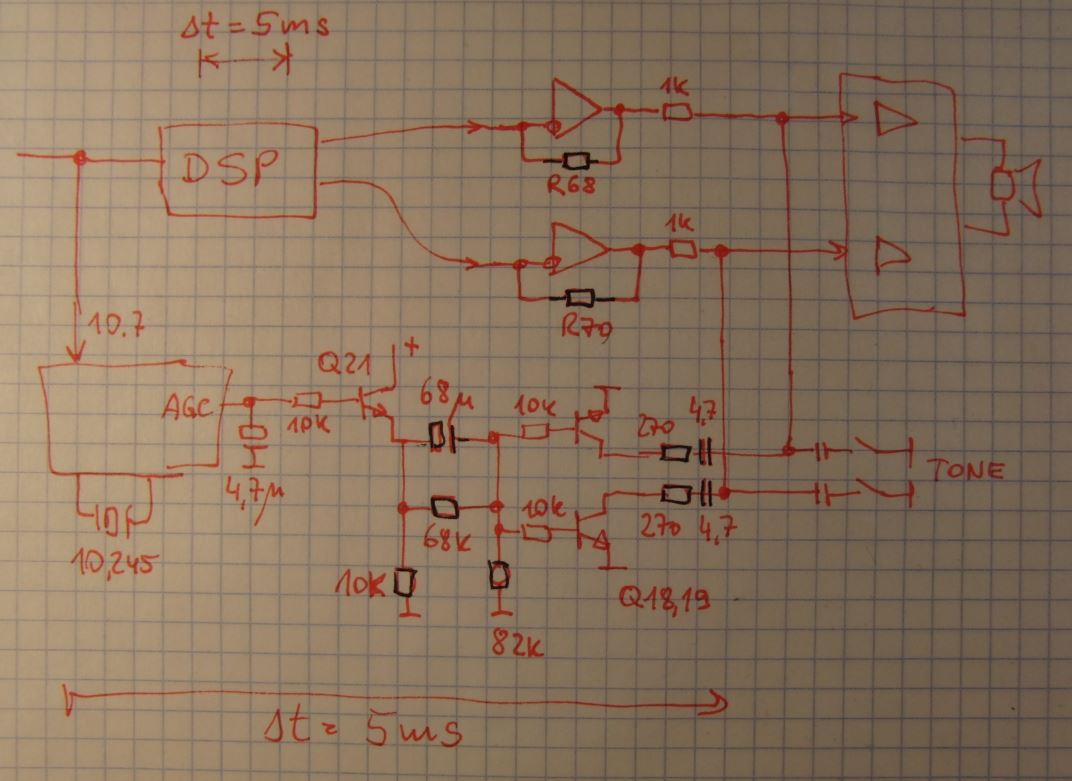 Δt = 5ms
DSP
1k
R68
1k
R70
10.7
AGC
10k
4,7µ
10,245
Q21
+
68µ
68k
10k
82k
10k
10k
270
4,7
270
4,7
Q18,19
TONE
Δt = 5ms